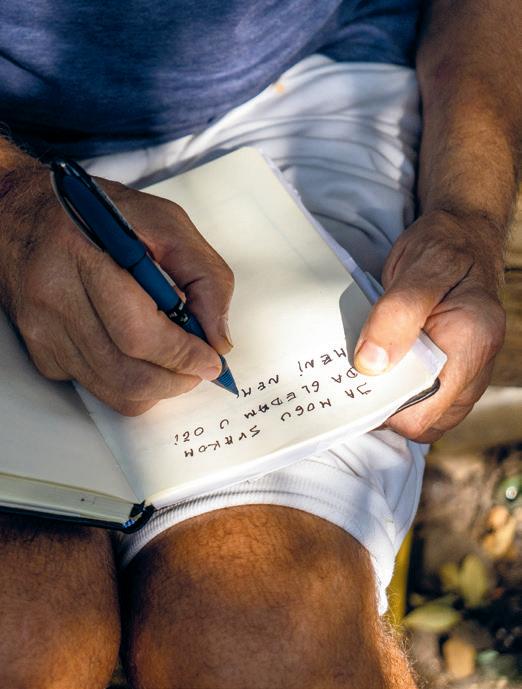 JA MOGU SVAKOM
DA GLEDAM U OČi
MENi NEM